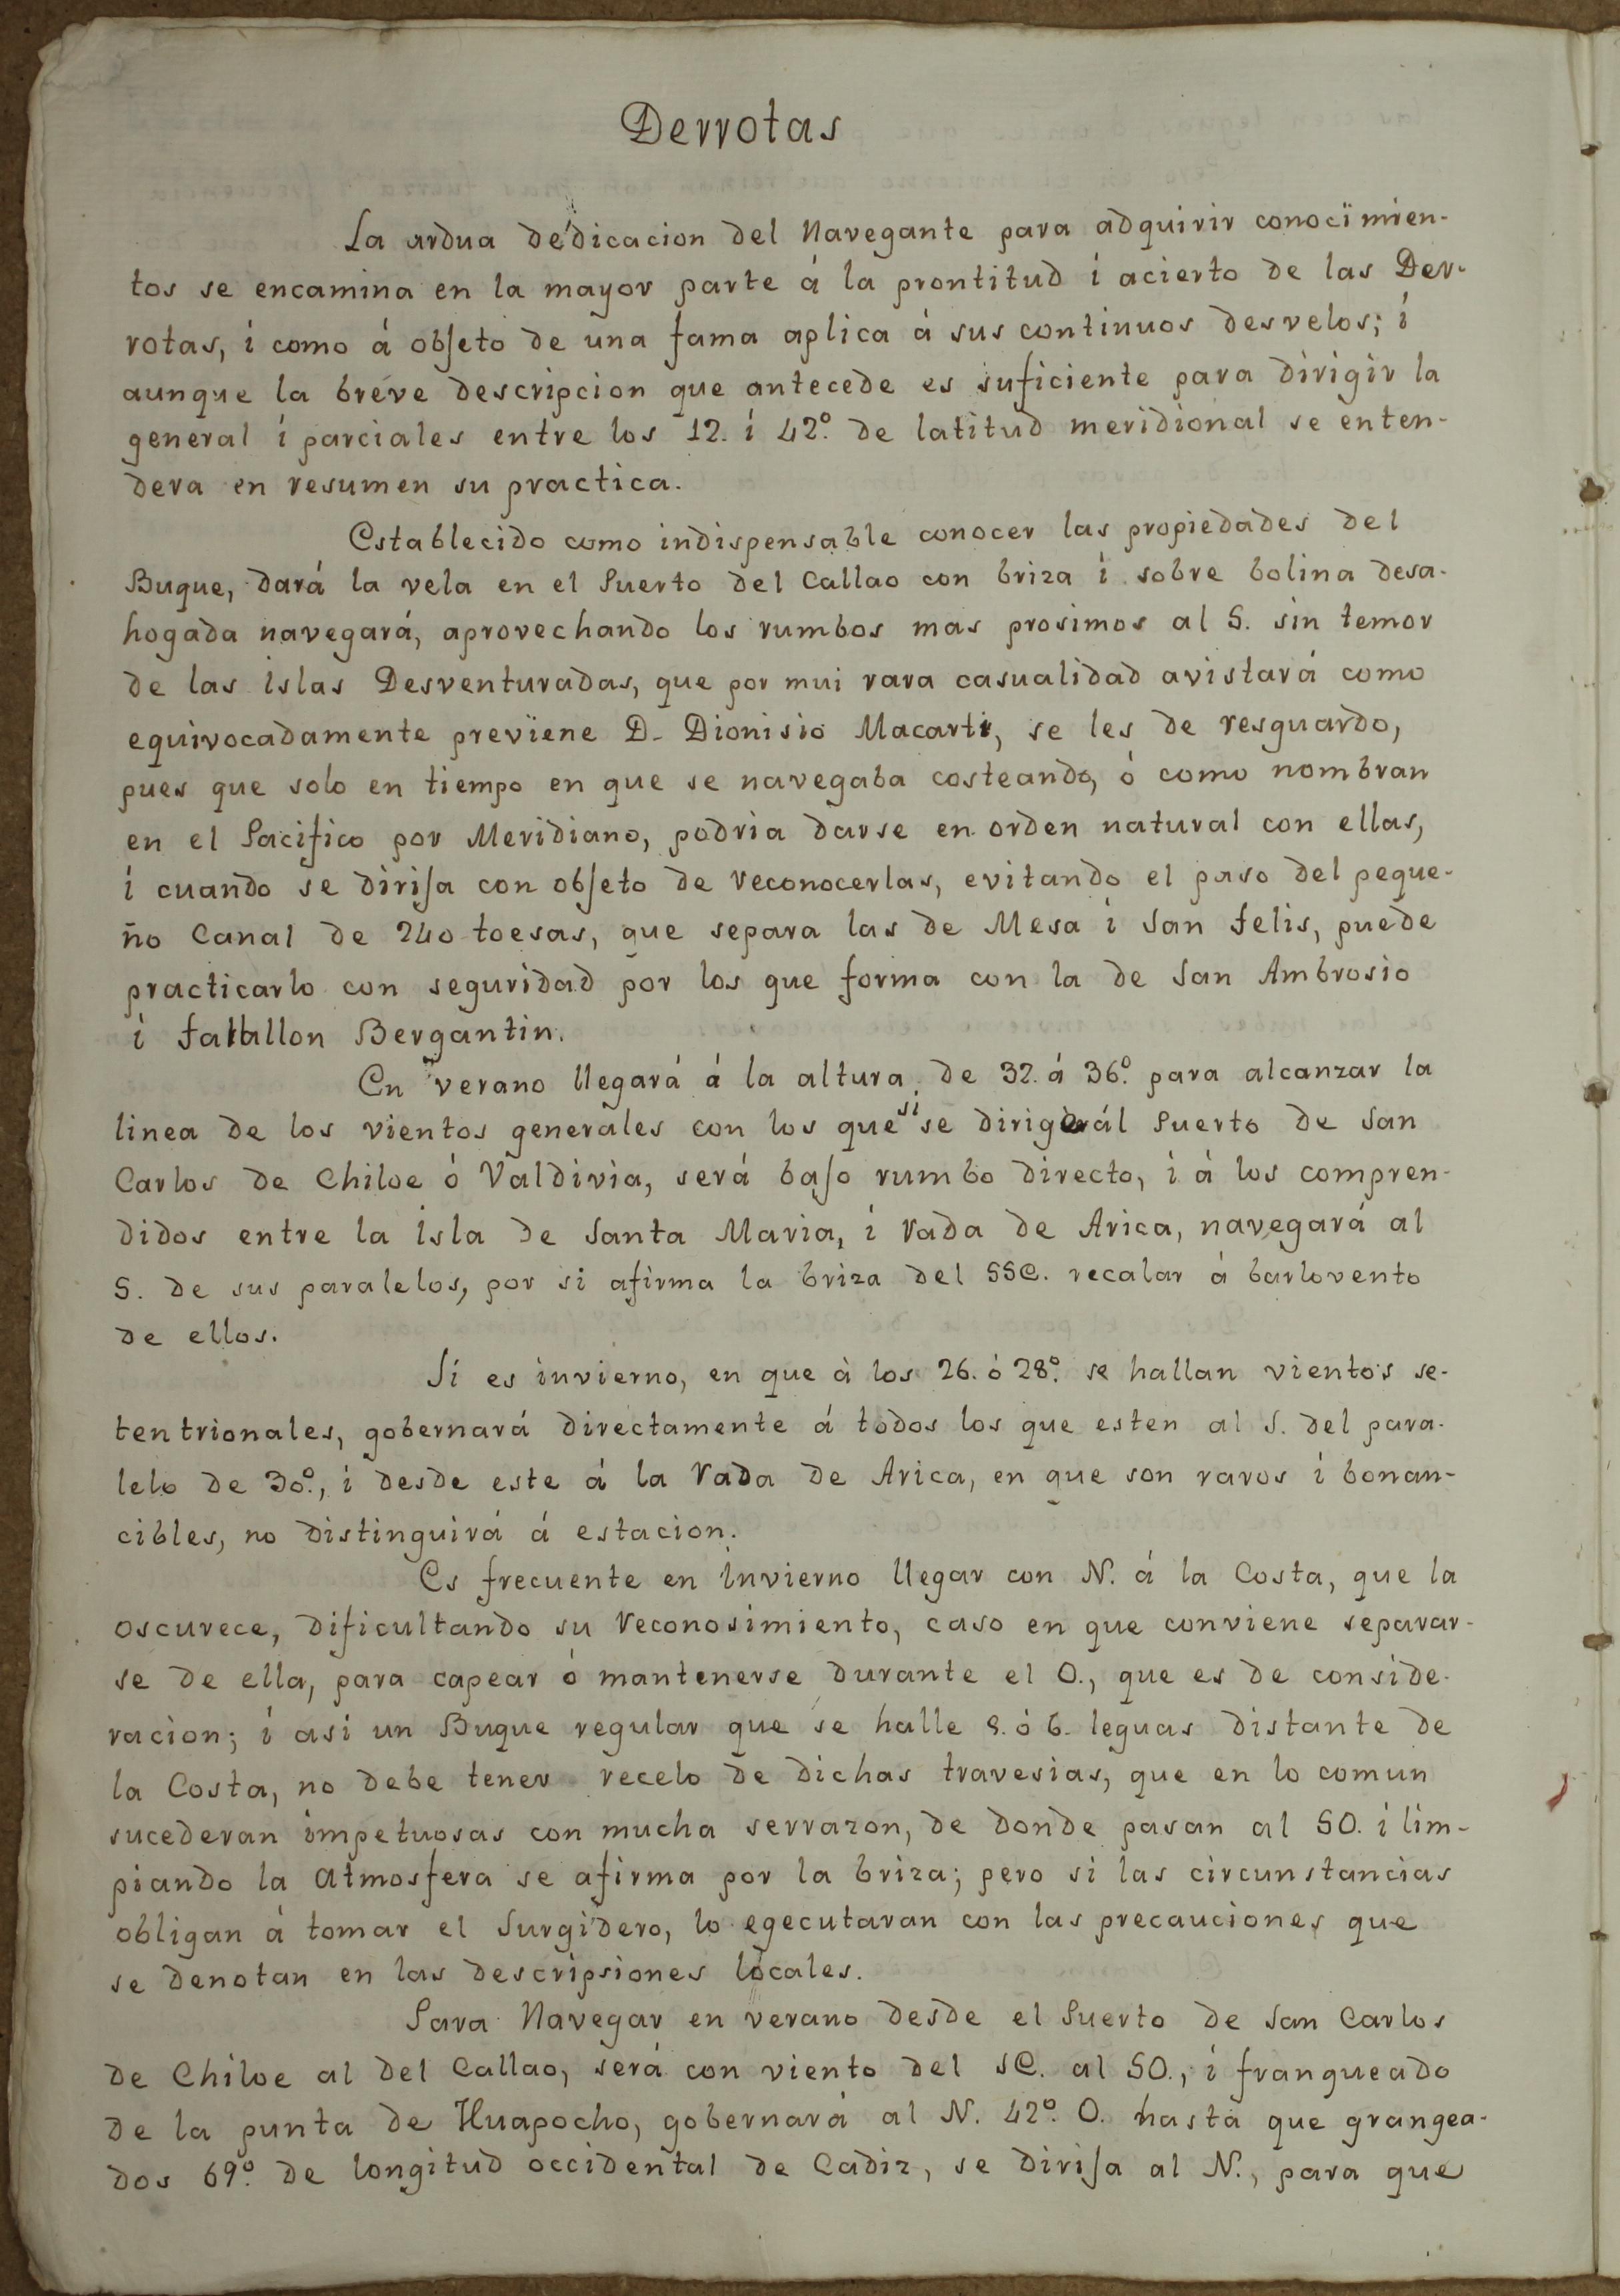 Derrotas
La ardua dedicacion del Navegante para adquirir conocimien-
tos se encamina en la mayor parte á la prontitud i acierto de las Der-
rotas, i como á objeto de una fama aplica á sus continuos desvelos; i
aunque la breve descripcion que antecede es suficiente para dirigir la
general i parciales entre los 12. i 42º. de latitud meridional se enten-
dera en resumen su practica.
Establecido como indispensable conocer las propiedades del
Buque, dará la vela en el Puerto del Callao con briza i sobre bolina desa-
hogada navegará, aprovechando los rumbos mas prosimos al S. sin temor
de las islas Desventuradas, que por mui rara casualidad avistará como
equivocadamente previene D. Dionisio Macarti, se les de resguardo,
pues que solo en tiempo en que se navegaba costeando, ó como nombran
en el Pacifico por Meridiano, podria darse en orden natural con ellas,
i cuando se dirija con objeto de reconocerlas, evitando el paso del peque-
ño Canal de 240 toesas, que separa las de Mesa i San Felis, puede
practicarlo con seguridad por los que forma con la de San Ambrosio
i Farallon Bergantin.
En verano llegará á la altura de 32. á 36º. para alcanzar la
linea de los vientos generales con los que si se dirige al Puerto de San
Carlos de Chiloe ó Valdivia, será bajo rumbo directo, i á los compren-
didos entre la isla de Santa Maria, i rada de Arica, navegará al
S. de sus paralelos, por si afirma la briza del SSE. recalar á barlovento
de ellos.
Si es invierno, en que á los 26. ó 28º. se hallan vientos se-
tentrionales, gobernará directamente á todos los que esten al S. del para-
lelo de 30º., i desde este á la rada de Arica, en que son raros i bonan-
cibles, no distinguirá á estacion.
Es frecuente en invierno llegar con N. á la Costa, que la
oscurece, dificultando su reconosimiento, caso en que conviene separar-
se de ella, para capear ó mantenerse durante el O., que es de conside-
racion; i asi un Buque regular que se halle 8. ó 6. leguas distante de
la Costa, no debe tener recelo de dichas travesias, que en lo comun
sucederan impetuosas con mucha serrazon, de donde pasan al SO. i lim-
piando la atmosfera se afirma por la briza; pero si las circunstancias
obligan á tomar el Surgidero, lo egecutaran con las precauciones que
se denotan en las descripsiones locales.
Para Navegar en verano desde el Puerto de San Carlos
de Chiloe al del Callao, será con viento del SE. al SO., i franqueado
de la punta de Huapocho, gobernará al N. 42º. O. hasta que grangea-
dos 69º. de longitud occidental de Cadiz, se dirija al N., para que